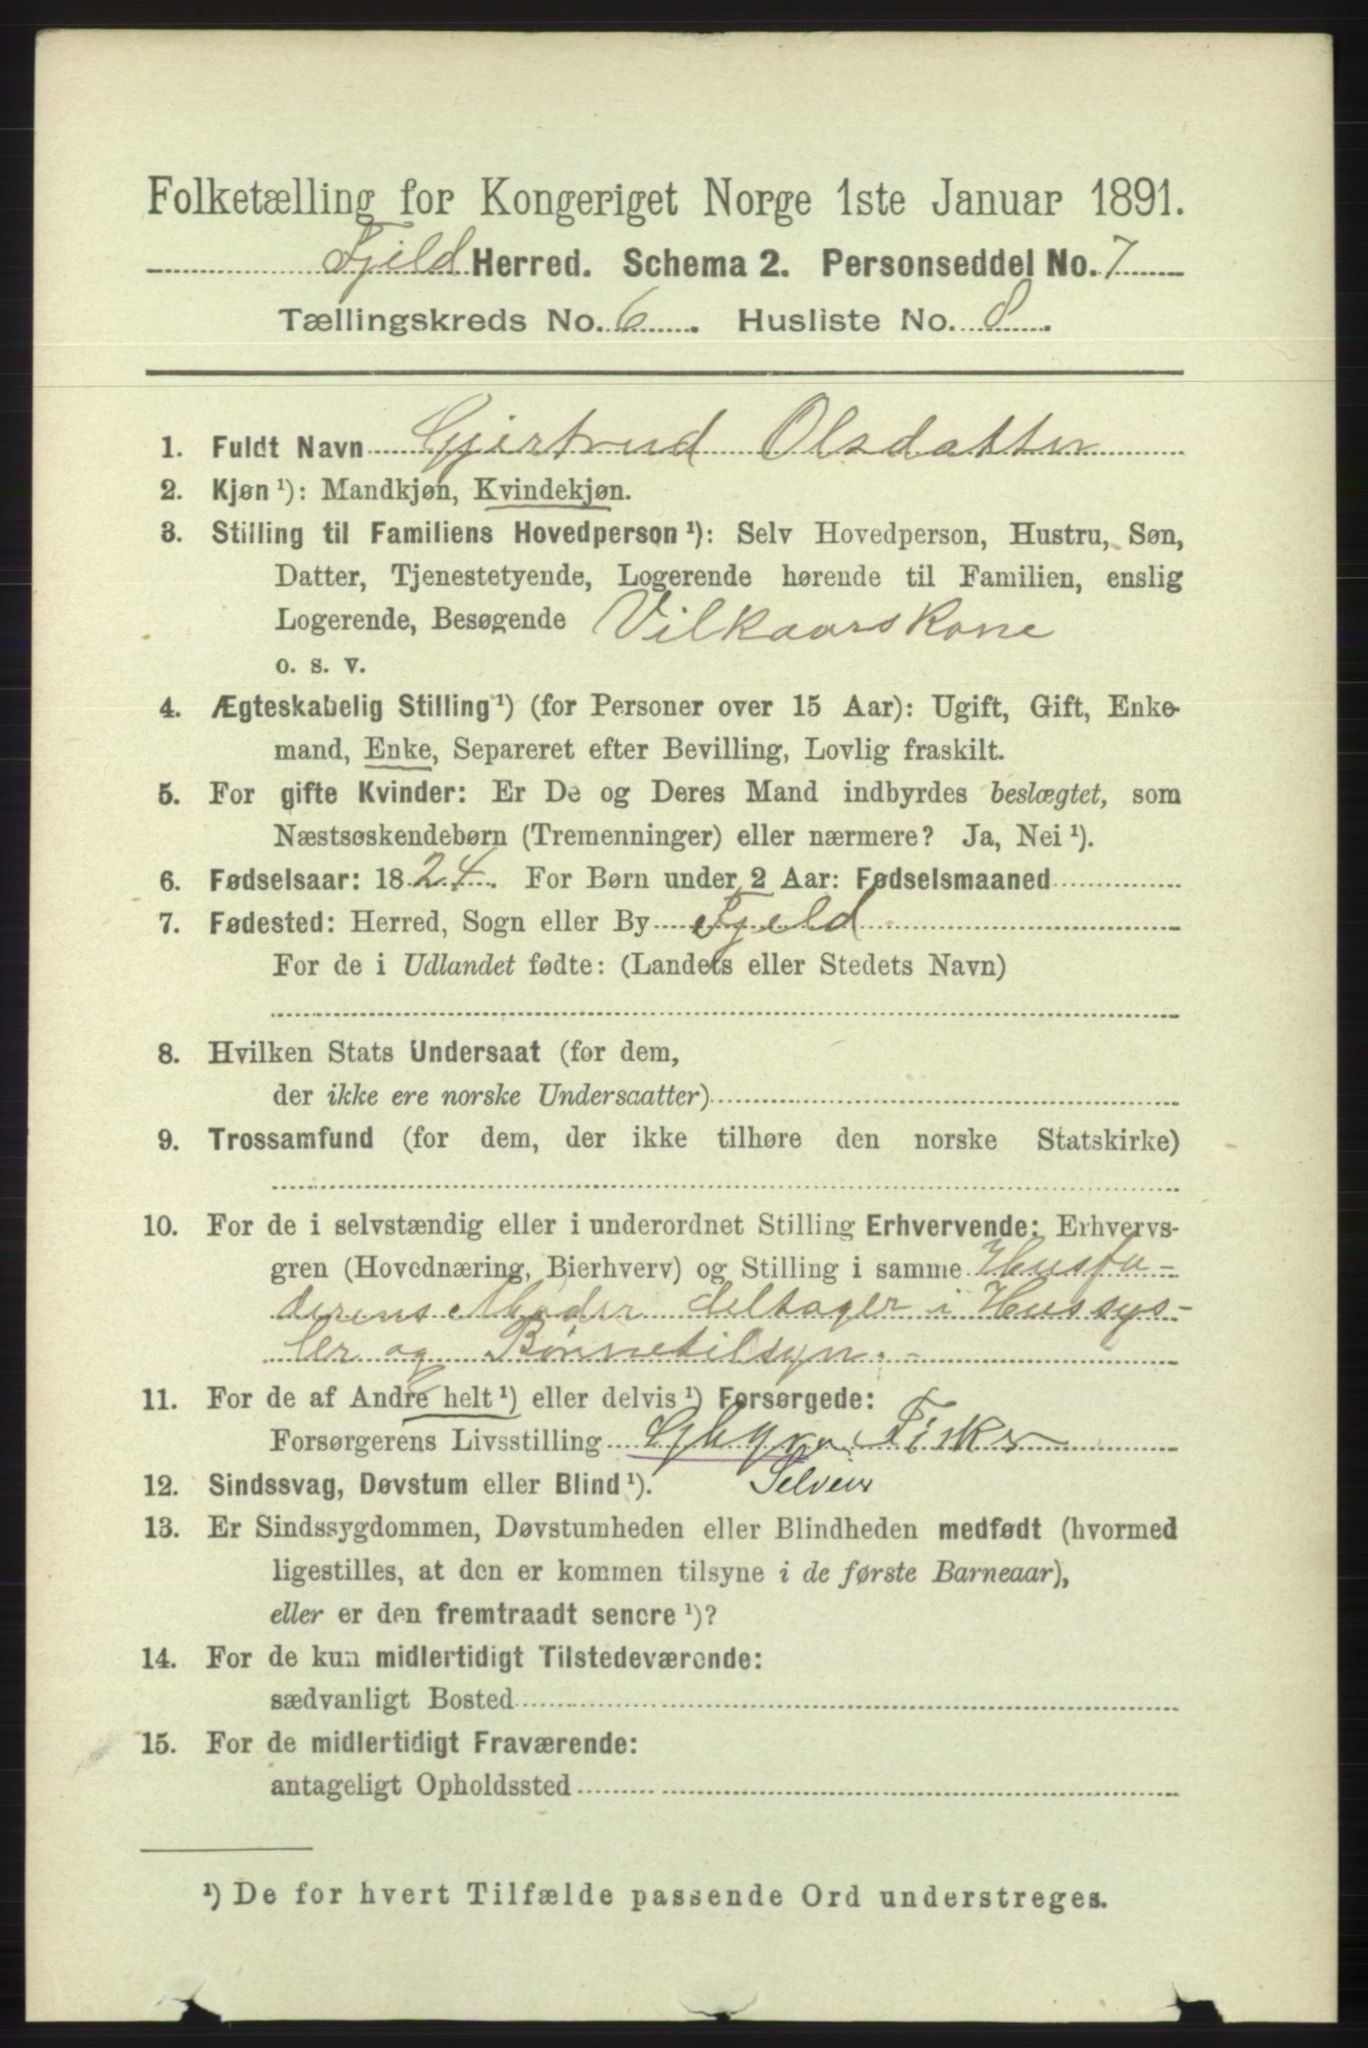 Folketælling for Kongeriget Norge 1ste Januar 1891.
Fjeld Herred. Schema 2. Personseddel No. 7
Tællingskreds No. 6. Husliste No. 8.
1. Fuldt Navn Gjertrud Olsdatter
2. Kjøn ¹): Mandkjøn, Kvindekjøn.
3. Stilling til Familiens Hovedperson ¹): Selv Hovedperson, Hustru, Søn,
Datter, Tjenestetyende, Logerende hørende til Familien, enslig
Logerende, Besøgende Vilkaarskone
o. s. v.
4. Ægteskabelig Stilling ¹) (for Personer over 15 Aar): Ugift, Gift, Enke-
mand, Enke, Separeret efter Bevilling, Lovlig fraskilt.
5. For gifte Kvinder: Er De og Deres Mand indbyrdes beslægtet, som
Næstsøskendebørn (Tremenninger) eller nærmere? Ja, Nei ¹).
6. Fødselsaar: 1824. For Børn under 2 Aar: Fødselsmaaned
7. Fødested: Herred, Sogn eller By Fjeld
For de i Udlandet fødte: (Landets eller Stedets Navn)
8. Hvilken Stats Undersaat (for dem,
der ikke ere norske Undersaatter)
9. Trossamfund (for dem, der ikke tilhøre den norske Statskirke)
10. For de i selvstændig eller i underordnet Stilling Erhvervende: Erhvervs-
gren (Hovednæring, Bierhverv) og Stilling i samme Husfa-
derens Moder deltager i Hussys-
ler og Børnetilsyn. -
11. For de af Andre helt ¹) eller delvis ¹) Forsørgede:
Forsørgerens Livsstilling Fisker
12. Sindssvag, Døvstum eller Blind ¹). Selveier
13. Er Sindssygdommen, Døvstumheden eller Blindheden medfødt (hvormed
ligestilles, at den er kommen tilsyne i de første Barneaar),
eller er den fremtraadt senere ¹)?
14. For de kun midlertidigt Tilstedeværende:
sædvanligt Bosted
15. For de midlertidigt Fraværende:
antageligt Opholdssted
¹) De for hvert Tilfælde passende Ord understreges.